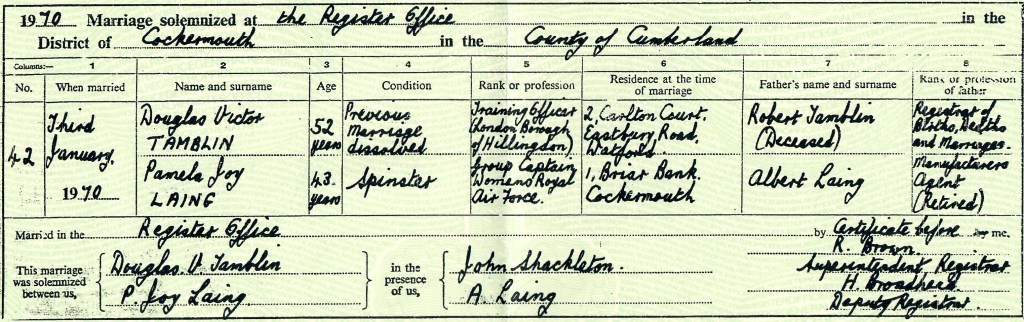 1970 Marriage solemnized at the Register Office in the
District of Cockermouth in the County of Cumberland
Columns:— 1 2 3 4 5 6 7 8
No. When married Name and surname Age Condition Rank or profession Residence at the time of marriage Father's name and surname Rank or profession of father
42
Third
January,
1970
Douglas Victor
TAMBLIN
52
years
Previous
Marriage
dissolved
Training Officer
(London Borough
of Hillingdon)
2, Carlton Court.
Eastbury Road,
Watford.
Robert Tamblin
(Deceased)
Registrar of
Births, Deaths
and Marriages.
Pamela Joy
LAING
43.
years
Spinster
Group Captain
Womens Royal
Air Force.
1, Briar Bank.
Cockermouth
Albert Laing
Manufacturers
Agent
(Retired)
Married in the Register Office by Certificate before me,
This marriage
was solemnized
between us,
Douglas V Tamblin
P. Joy Laing
in the
presence
of us,
John Shackleton.
A Laing
R. Brown
Superintendent Registrar
H. Broadhead
Deputy Registrar